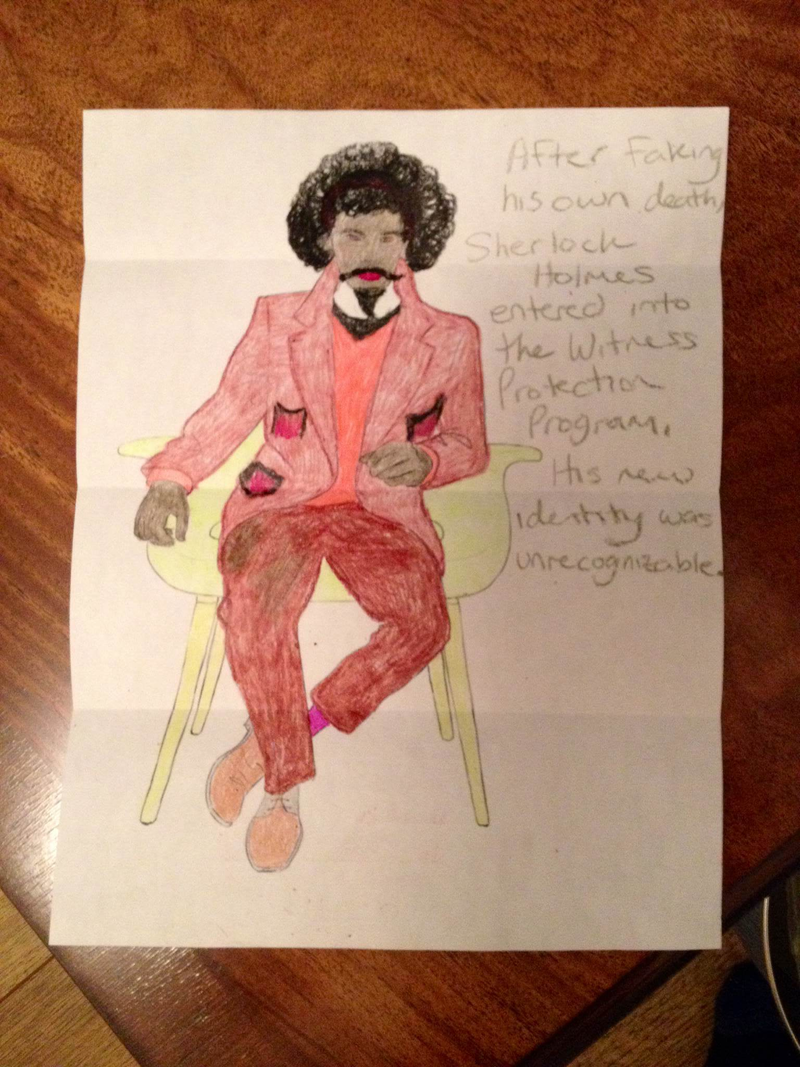 After Faking
his own death,
Sherlock
Holmes
entered into
the Witness
Protection
Program.
His new
identity was
unrecognizable.